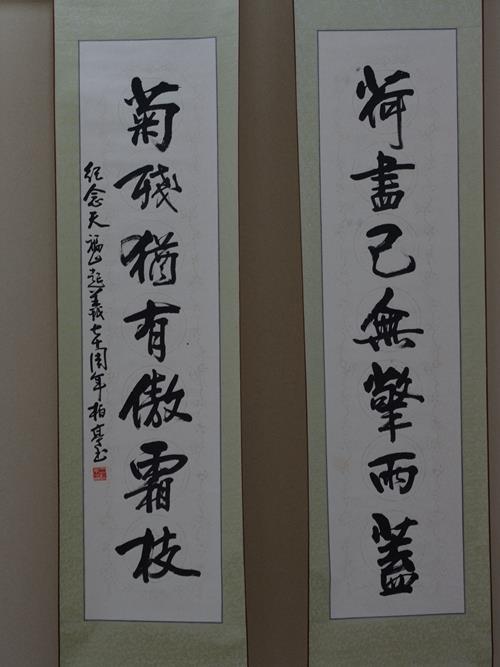 荷盡已無擎雨蓋
菊殘猶有傲霜枝
紀念天福山起義七十周年柏亭书